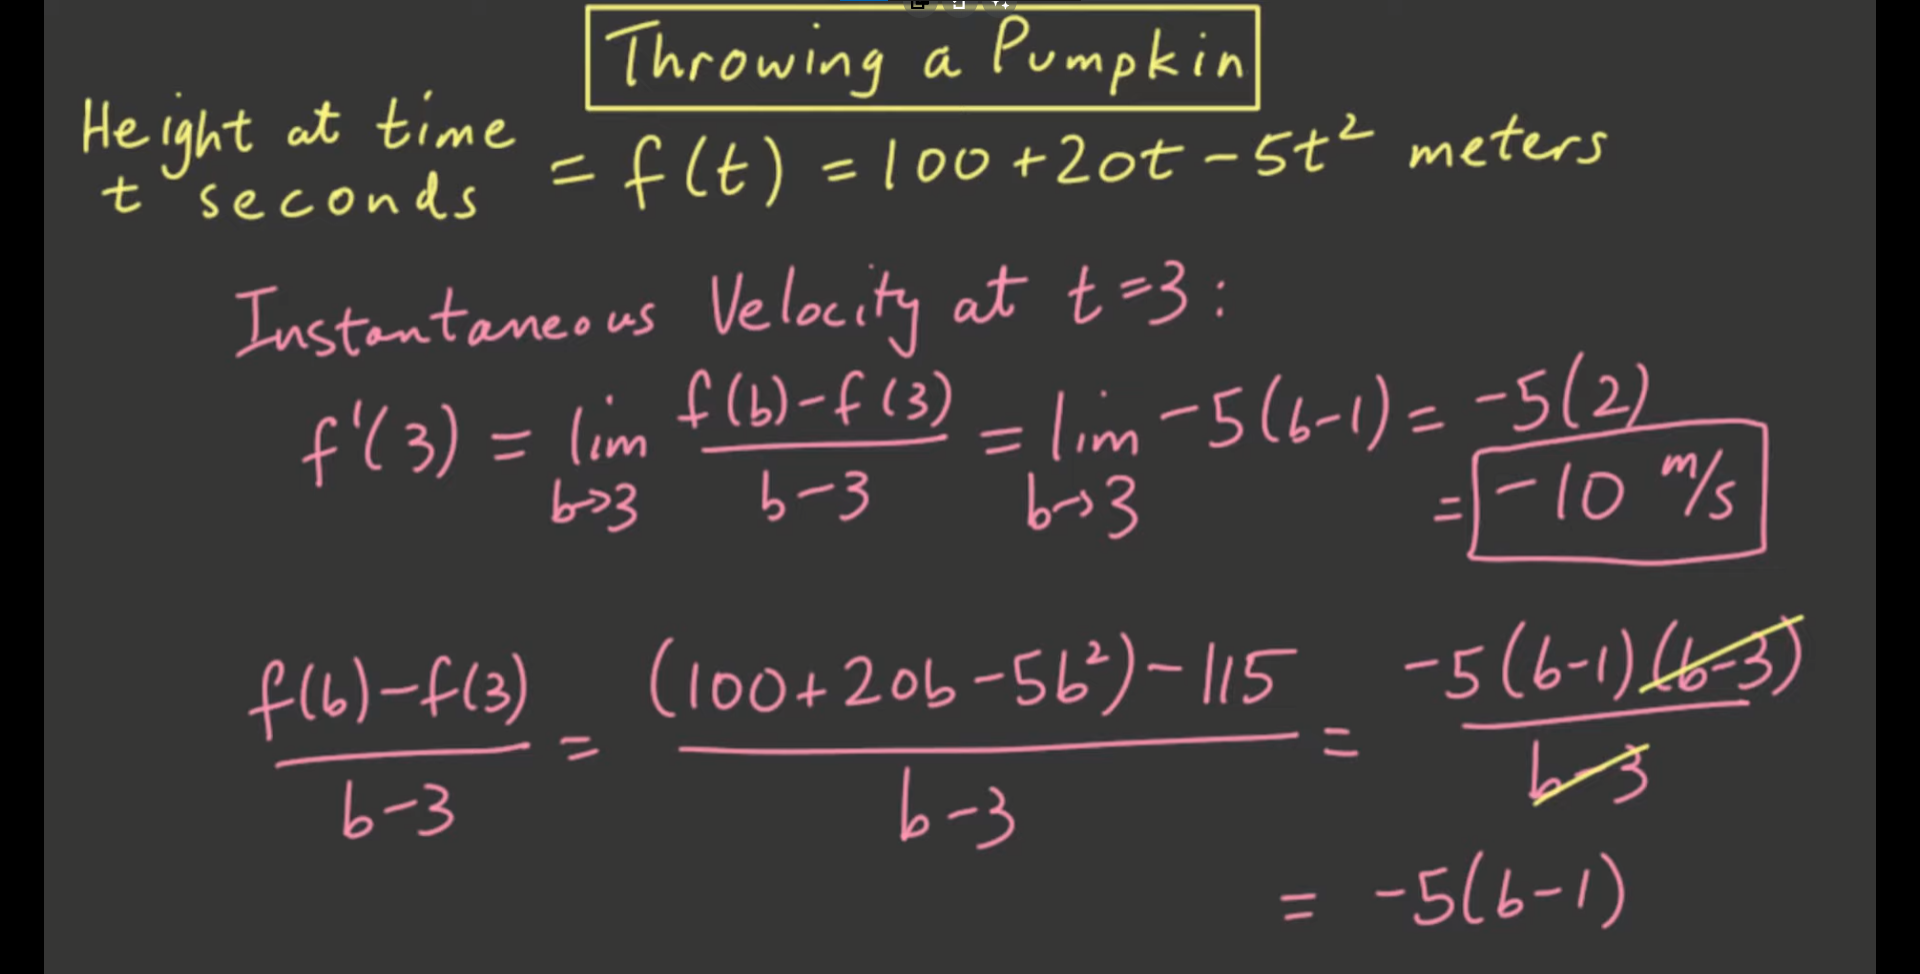 Throwing a Pumpkin
Height at time t seconds = f(t) = 100 + 20t - 5t² meters
Instantaneous Velocity at t = 3:
f'(3) = lim b→3 (f(b) - f(3))/(b - 3) = lim b→3 -5(b-1) = -5(2)
= -10 m/s
(f(b) - f(3))/(b - 3) = ((100 + 20b - 5b²) - 115)/(b - 3) = (-5(b-1)(b-3))/(b-3)
= -5(b-1)